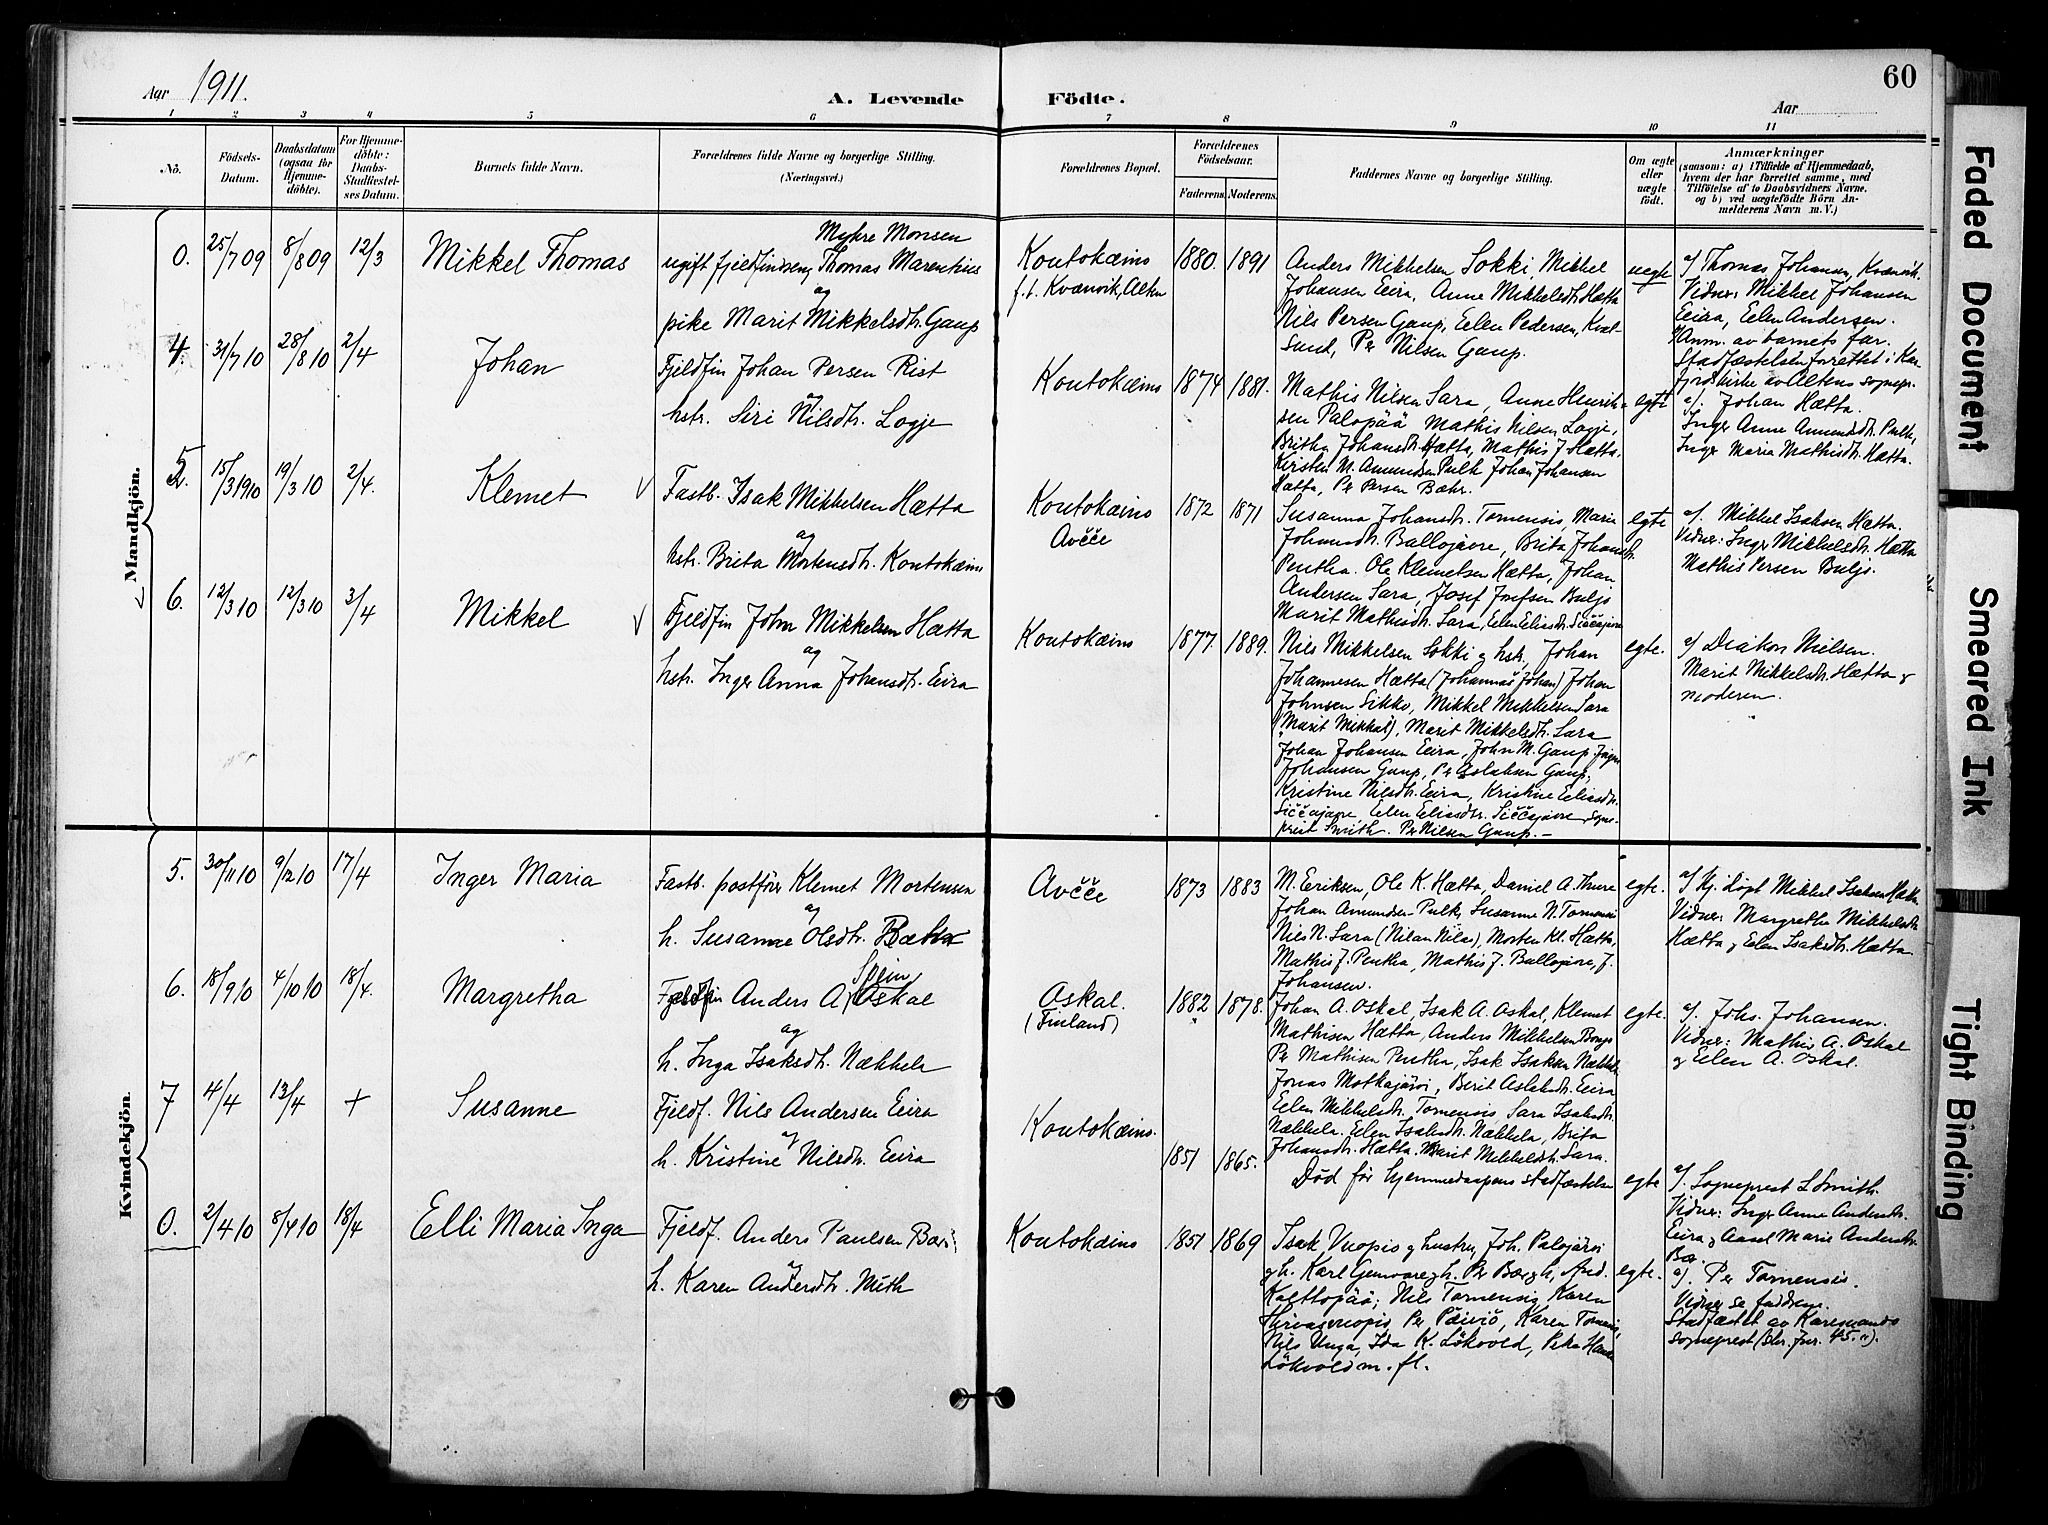 60
Aar 1911.
A. Levende Födte.
Aar
1 2 3 4 5 6 7 8 9 10 11
No.
Födsels-Datum.
Daabsdatum (ogsaa for Hjemme-döbte).
For Hjemme-döbte: Daabs-Stadfæstel-ses Datum.
Barnets fulde Navn.
Forældrenes fulde Navne og borgerlige Stilling.
(Næringsvei.)
Forældrenes Bopæl.
Forældrenes Födselsaar.
Faderens. Moderens.
Faddernes Navne og borgerlige Stilling.
Om ægte eller uægte födt.
Anmærkninger
(saasom: a) i Tilfælde af Hjemmedaab,
hvem der har forrettet samme, med
Tilföielse af to Daabsvidners Navne,
og b) ved uægtefödte Börn An-
melderens Navn m. V.)
Mandkjön.
0. 25/7 09 8/8 09 12/3 Mikkel Thomas
Myhre Monsen
ugift fjeldfindreng Thomas Marentius
og
pike Marit Mikkelsdtr. Gaup
Koutokæino
f.t. Kvænvik, Alten
1880. 1891
Anders Mikkelsen Sokki, Mikkel
Johansen Eira, Anne Mikkelsdtr. Hætta
Nils Persen Gaup, Eelen Pedersen, Kval-
sund, Per Nilsen Gaup.
uegte
a/ Thomas Johansen, Kvænvik.
Vidner: Mikkel Johansen
Eira, Eelen Andersen.
Anm. av barnets far.
Stadfæstelsen forrettet i Kaa-
fjord kirke av Altens sognepr.
4. 31/7 10 28/8 10 2/4 Johan
Fjeldfin Johan Persen Rist
og
hstr. Siri Nilsdtr. Logje
Koutokæino 1874 1881.
Mathis Nilsen Sara, Anne Henrik-
sen Palopää Mathis Nilsen Logje,
Britha Johansdtr. Hætta, Mathis J. Hætta.
Kirsten M. Amundsen Pulk Johan Johansen
Hætta, Per Persen Bæhr.
egte
a/. Johan Hætta.
Inger Anne Amundsdtr. Pulk,
Inger Maria Mathisdtr. Hætta.
5. 15/3 1910 19/3 10 2/4. Klemet
Fastb. Isak Mikkelsen Hætta
og
hstr. Brita Mortensdtr. Koutokæino
Koutokæino
Avčče
1872 1871
Susanna Johansdtr. Tornensis, Marie
Johansdtr. Ballojavre, Brita Johansdtr.
Pentha. Ole Klemetsen Hætta, Johan
Andersen Sara, Josef Josefsen Buljo
Marit Mathisdtr. Sara, Eelen Eliasdtr. Siččajavre
egte
a/. Mikkel Isaksen Hætta.
Vidner: Inger Mikkelsdtr. Hætta
Mathis Persen Buljo.
6. 12/3 10 12/3 10 3/4 Mikkel
Fjeldfin John Mikkelsen Hætta
og
hstr. Inger Anna Johansdtr. Eira
Koutokæino 1877. 1889.
Nils Mikkelsen Sokki g hstr, Johan
Johannesen Hætta (Johannas Johan) Johan
Johnsen Sikko, Mikkel Mikkelsen Sara
(Marit Mikkal), Marit Mikkelsdtr. Sara
Johan Johansen Eira, John M. Gaup, Inger
Johansen Gaup, Per Aslaksen Gaup,
Kristine Nilsdtr. Eira, Kristine Eeliasdtr.
Siččajavre, Eelen Eliasdtr. Siččajavre, sogne-
prest Smith. Per Nilsen Gaup. –
egte.
a/ Diakon Nielsen.
Marit Mikkelsdtr. Hætta g
moderen.
Kvindekjön.
5. 30/11 10 9/12 10 17/4 Inger Maria
Fastb. postförer Klemet Mortensen
og
h. Susanne Olsdtr. Hætta
Avčče 1873 1883
M. Eriksen, Ole K. Hætta, Daniel A. Thure
Johan Amundsen Pulk, Susanne N. Tornensis
Nils N. Sara (Nilan Nilas), Morten Kl. Hætta,
Mathis J. Pentha, Mathis J. Ballojavre, J.
Johansen.
egte.
a/ Kj. Löpt Mikkel Isaksen Hætta
Vidner: Margretha Mikkelsdtr.
Hætta g Eelen Isaksdtr. Hætta
6. 18/9 10 4/10 10 18/4. Margretha
Spein
Fjeldfin Anders A. Oskal
og
h. Inga Isaksdtr. Nækkela
Oskal.
(Finland)
1882 1878.
Johan A. Oskal, Isak A. Oskal, Klemet
Mathisen Hætta, Anders Mikkelsen Bongo
Per Mathisen Pentha, Isak Isaksen Nækkela
Jonas Motkajärvi, Berit Aslaksdtr. Eira,
Eelen Mikkelsdtr. Tornensis, Sara Isaksdtr.
Nækkela. Eelen Isaksdtr. Nækkela, Brita
Johansdtr. Hætta. Marit Mikkelsdtr. Sara.
egte.
a/. Johs. Johansen.
Vidner: Mathis A. Oskal
g Eelen A. Oskal.
7 4/4 13/4 + Susanne
Fjeldf. Nils Andersen Eira
og
h. Kristine Nilsdtr. Eira
Koutokæino.
1851 1865.
Död för hjemmedaapens stadfæstelse
egte
a/. Sogneprest L Smith.
Vidner: Inger Anne Andersdtr.
Eira g Aasel Marie Andersdtr.
Bær.
0. 2/4 10 8/4 10 18/4 Elli Maria Inga
Fjeldf. Anders Paulsen Bær
og
h. Karen Andersdtr. Muth
Koutokæino 1851 1869
Isak Vuopio g hustru, Joh. Palojärvi
g h. Karl Genvare g h. Per Bær g h, And.
Kalttopää; Nils Tornensis, Karen
Hirvasvuopio Per Päiviö, Karen Tornensis,
Nils Unga, Ida K. Lökvold, Peka
Lökvold m. fl.
egte.
a/. Per Tornensis.
Vidner se fadrene.
Stadfæstet av Karesuando
sogneprest (skr. Jnr. 45. 11).
Faded Document
Smeared Ink
Tight Binding